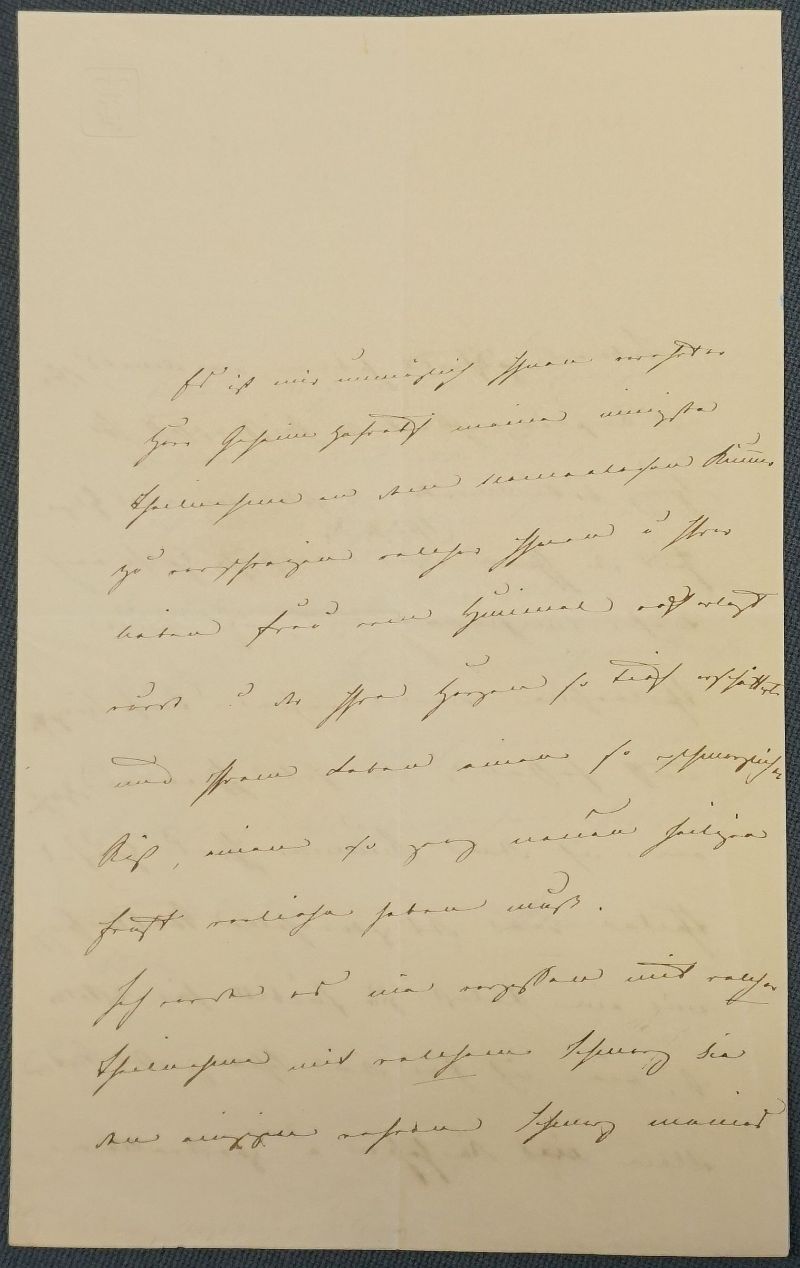 Es ist mir unmöglich Ihnen verehrter
Herr Geheim Hofrath meine innigste
Theilnahme an dem namenlosen Kummer
zu verschweigen welcher Ihnen u Ihrer
lieben Frau vom Himmel auferlegt
wurde u der Ihre Herzen so tief erschüttert
und Ihrem Leben einen so schmerzlichen
Riß, einen so ganz neuen heiligen
Ernst verliehen haben muß.
Ich werde es nie vergessen mit welcher
Theilnahme mit welchem Schmerz Sie
den einzigen wahren Schmerz meines